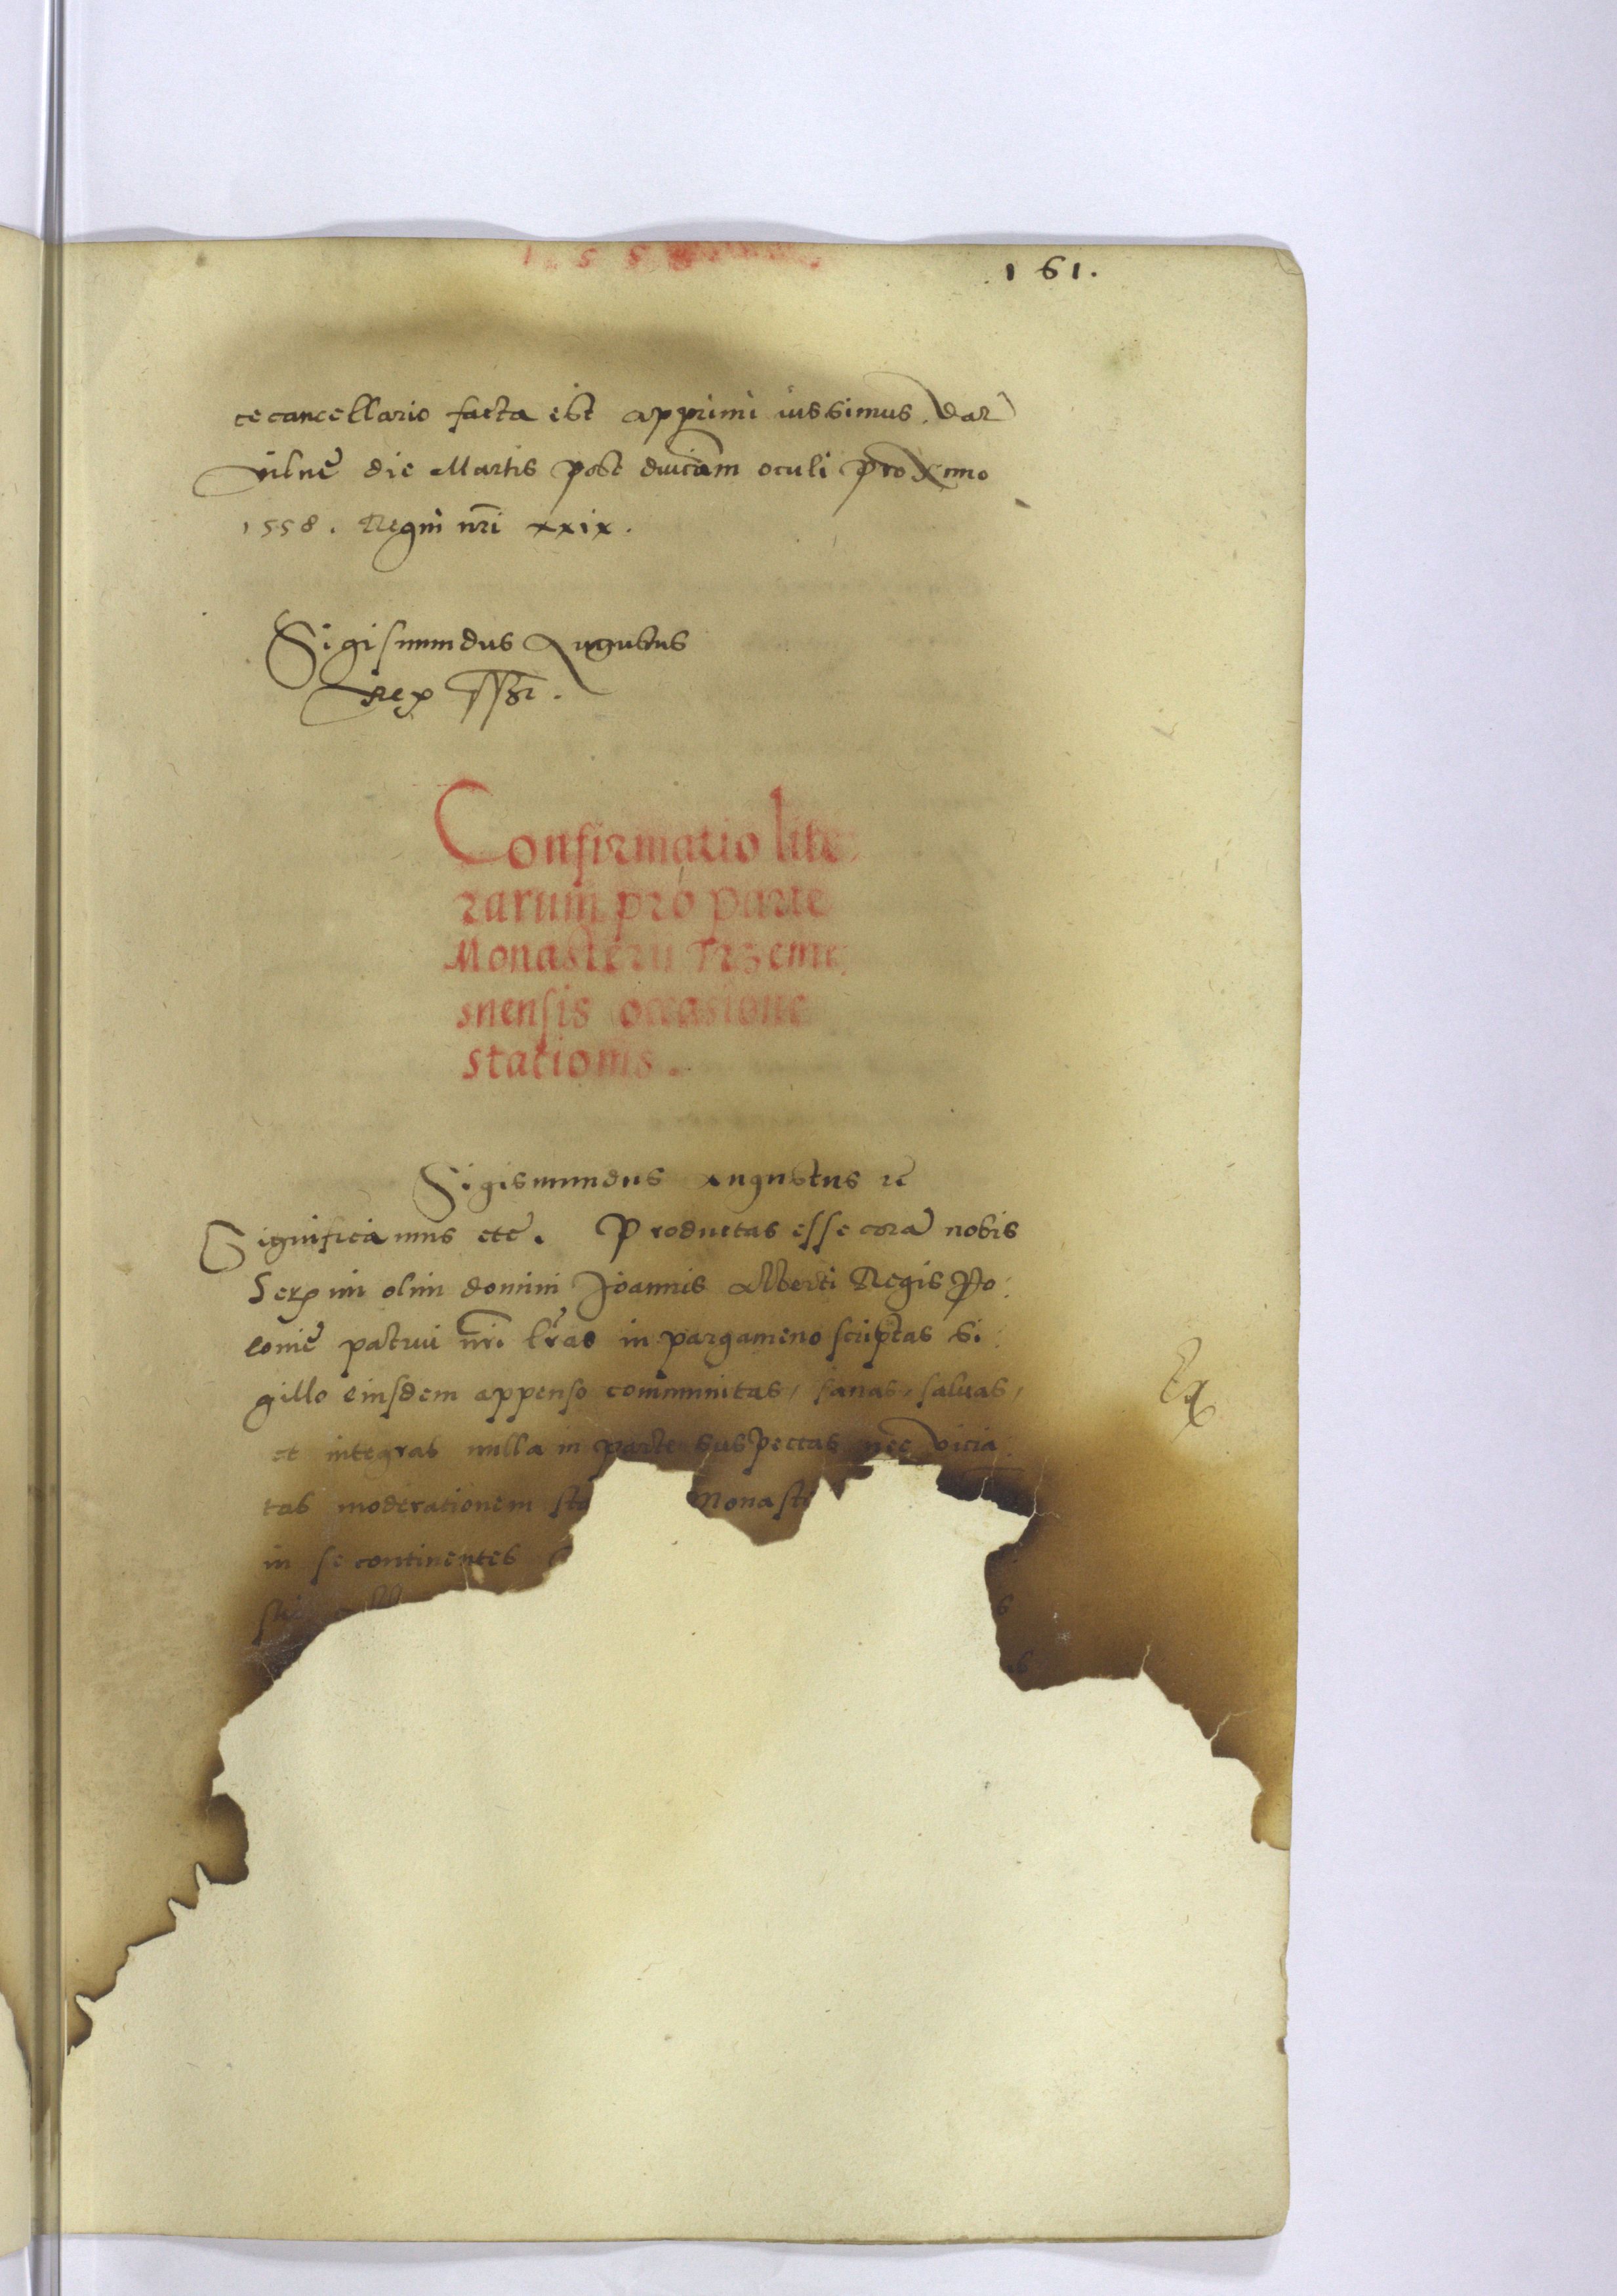 155
161.
cecancellario facta est apprimi iussimus. Dat
vilne die Martis post dnicam oculi proximo
1558. Regni nri xxix.
Sigismundus Augustus
Rex sst.
Confirmatio lite
rarum pro parte
Monasterii Trzeme,
snensis occasione
stationis.
Sigismundus Augustus re
Significamus etc. Productas esse cora nobis
Ser mi olim domini Joannis Alberti Regis Po:
lonie patrui nri lras in pargameno scriptas si:
gillo eiusdem appenso communitas, sanas, saluas,
et integras nulla in parte suspectas nec vicia:
tas moderationem sta Monasti
in se continentes
s
s